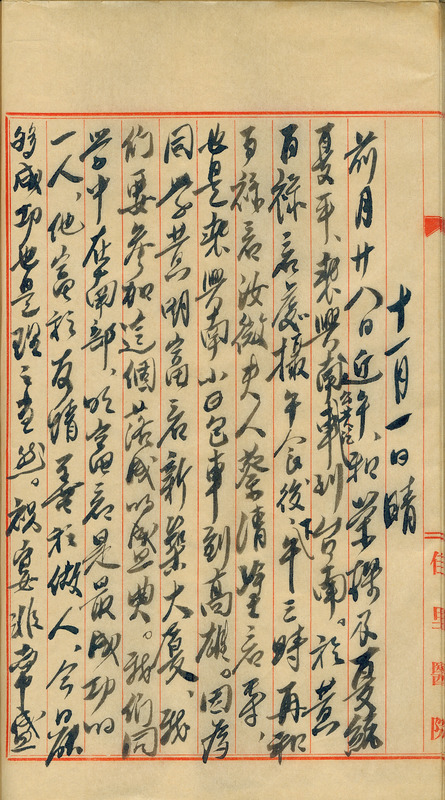 十一月一日晴
前月廿八日近午、和榮樑及夏統
夏平、乘興南公共汽車到台南。於黃
百祿君處攝午食後、下午三時再和
百祿君汝微夫人蔡清 君等、
也是乘興南小日包車到高雄。因為
同學黃明富君新築大廈、我
們要參加這個落成的盛典。我們同
學中在南部、明富君是最成功的
一人、他富於友情善於做人、今日能
够成功也是理之當然。祝宴非常盛
佳里醫院